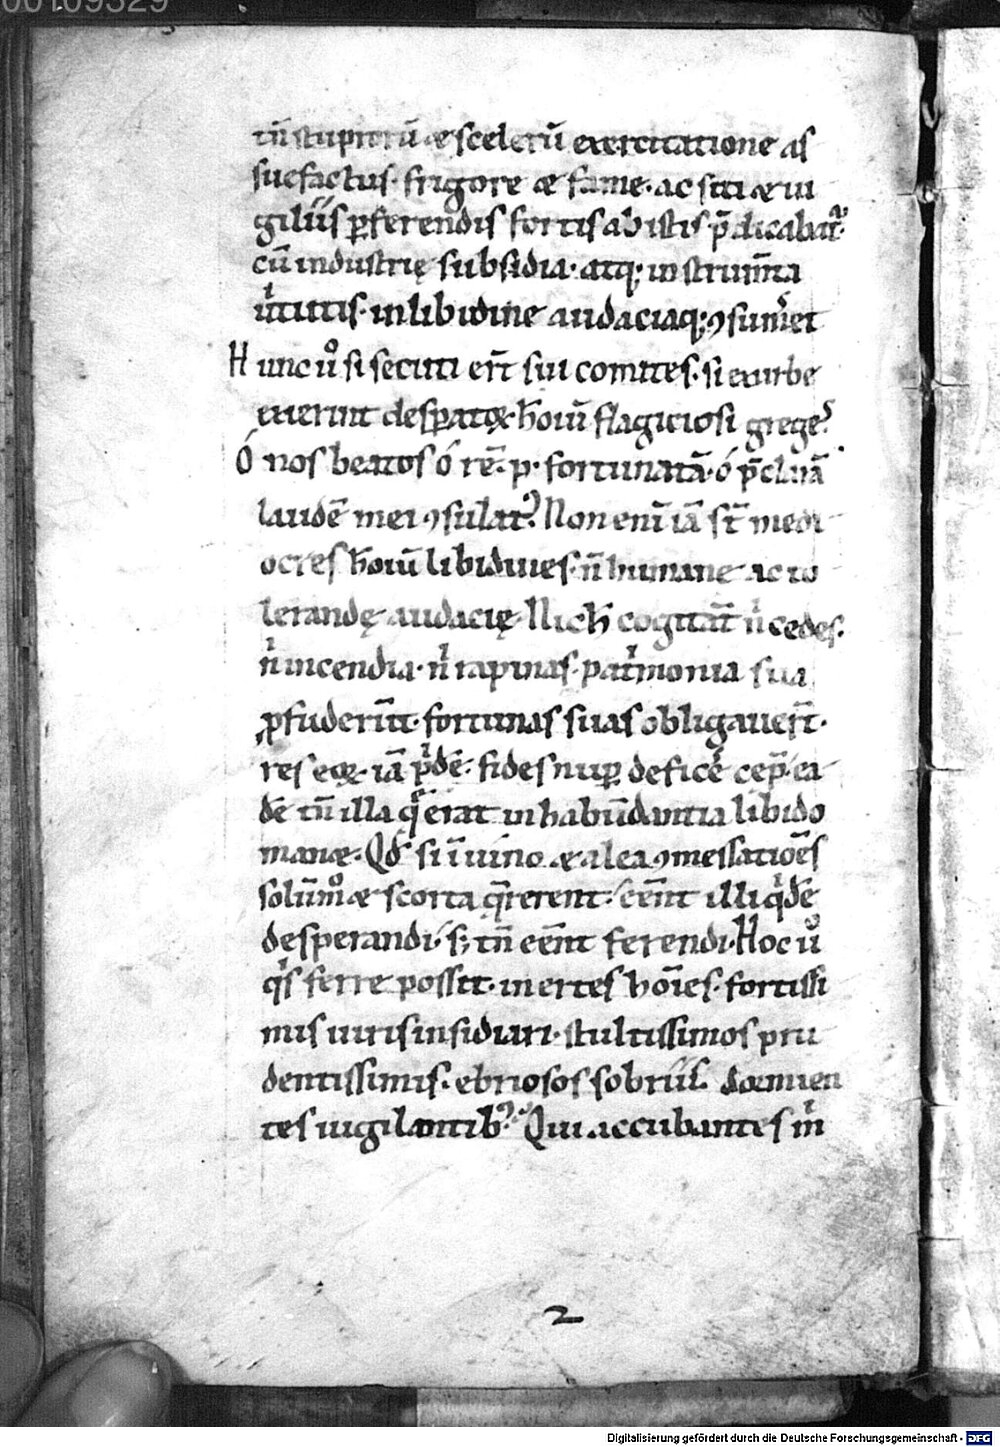 00109329
tn̄ stuprorū & scelerū exercitatione as
suefactus· frigore & fame· ac siti & ui
giliis ꝑferendis fortis ab istis p̄dicabat᷑·
cū industrię subsidia· atq; instrum̄ta
uͥtutis· in libidine audaciaq; ꝯsum̄et
Hunc uͦ si secuti er̄t sui comites· si exurbe
exierint desꝑatoꝝ hoiū flagiciosi greges
Ó nos beatos ó rē· p· fortunatā· ó p̄clarā
laudē mei ꝯsulat᷑? Non eni iā st̄ medi
ocres hoiū libidines· n̄ humane ac to
lerandę audacię· Nich̄ cogitat̄ nͥ cedes·
nͥ incendia· nͥ rapinas· patͥmonia sua
ꝓfuderūt· fortunas suas obligauer̄t·
res eoꝝ iā pͥdē· fides nuꝑ deficē cep̄· ea
dē tn̄ illa q̄ erat in habūdantia libido
man&· Qđ si ī uino & alea ꝯmessatioēs
solūmͦ & scorta q̄rerent· eēnt illi qͥdē
desperandi· s; tn̄ eēnt ferendi· Hoc uͦ
qͥs ferre possit· inertes hoīes· fortissi
mis uiris insidiari· stultissimos pru
dentissimis· ebriosos sobriis· dormien
tes uigilantib᷒? Qui accubantes in̄
2
Digitalisierung gefördert durch die Deutsche Forschungsgemeinschaft - DFG